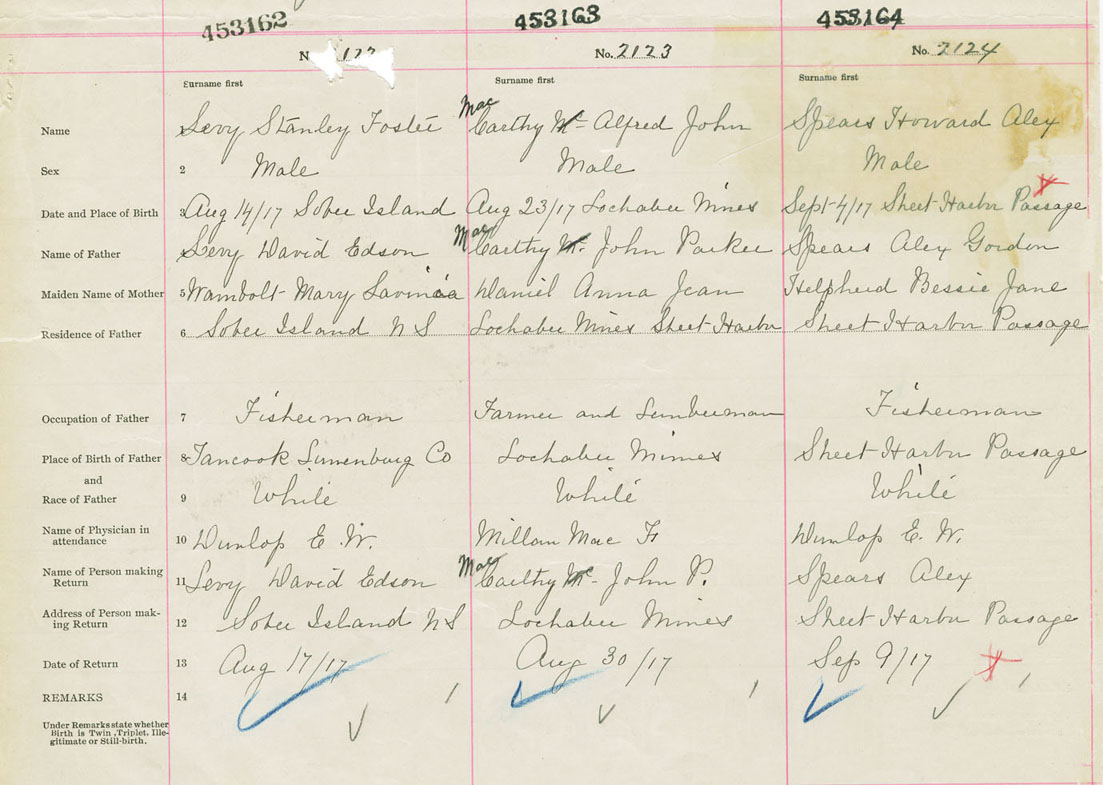 453162 453163 453164
No. 2123 No. 2124
Surname first Surname first Surname first
Name Levy Stanley Foster Mac Carthy Mc Alfred John Spears Howard Alex
Sex 2 Male Male Male
Date and Place of Birth 3 Aug 14/17 Sober Island Aug 23/17 Lochaber Mines Sept 4/17 Sheet Harbor Passage
Name of Father Levy David Edson Mac Carthy Mc. John Parker Spears Alex Gordon
Maiden Name of Mother 5 Wambolt Mary Lavinia Daniel Anna Jean Bessie Jane
Residence of Father 6 Sober Island N S Lochaber Mines Sheet Harbor Sheet Harbor Passage
Occupation of Father 7 Fisherman Farmer and Lumberman Fisherman
Place of Birth of Father 8 Tancook Lunenburg Co Lochaber Mines Sheet Harbor Passage
and
Race of Father 9 White White White
Name of Physician in
attendance 10 Dunlop E. W. Millan Mac F Dunlop E. W.
Name of Person making
Return 11 Levy David Edson Mac Carthy Mc - John P. Spears Alex
Address of Person mak-
ing Return 12 Sober Island N S Lochaber Mines Sheet Harbor Passage
Date of Return 13 Aug 17/17 Aug 30/17 Sep 9/17
REMARKS 14
Under Remarks state whether
Birth is Twin, Triplet, Ille-
gitimate or Still-birth.